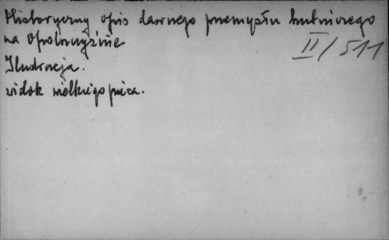 Historyczny opis dawnego przemysłu hutniczego
na Opolszczyźnie II/511
Ilustracja.
widok wielkiego pieca.